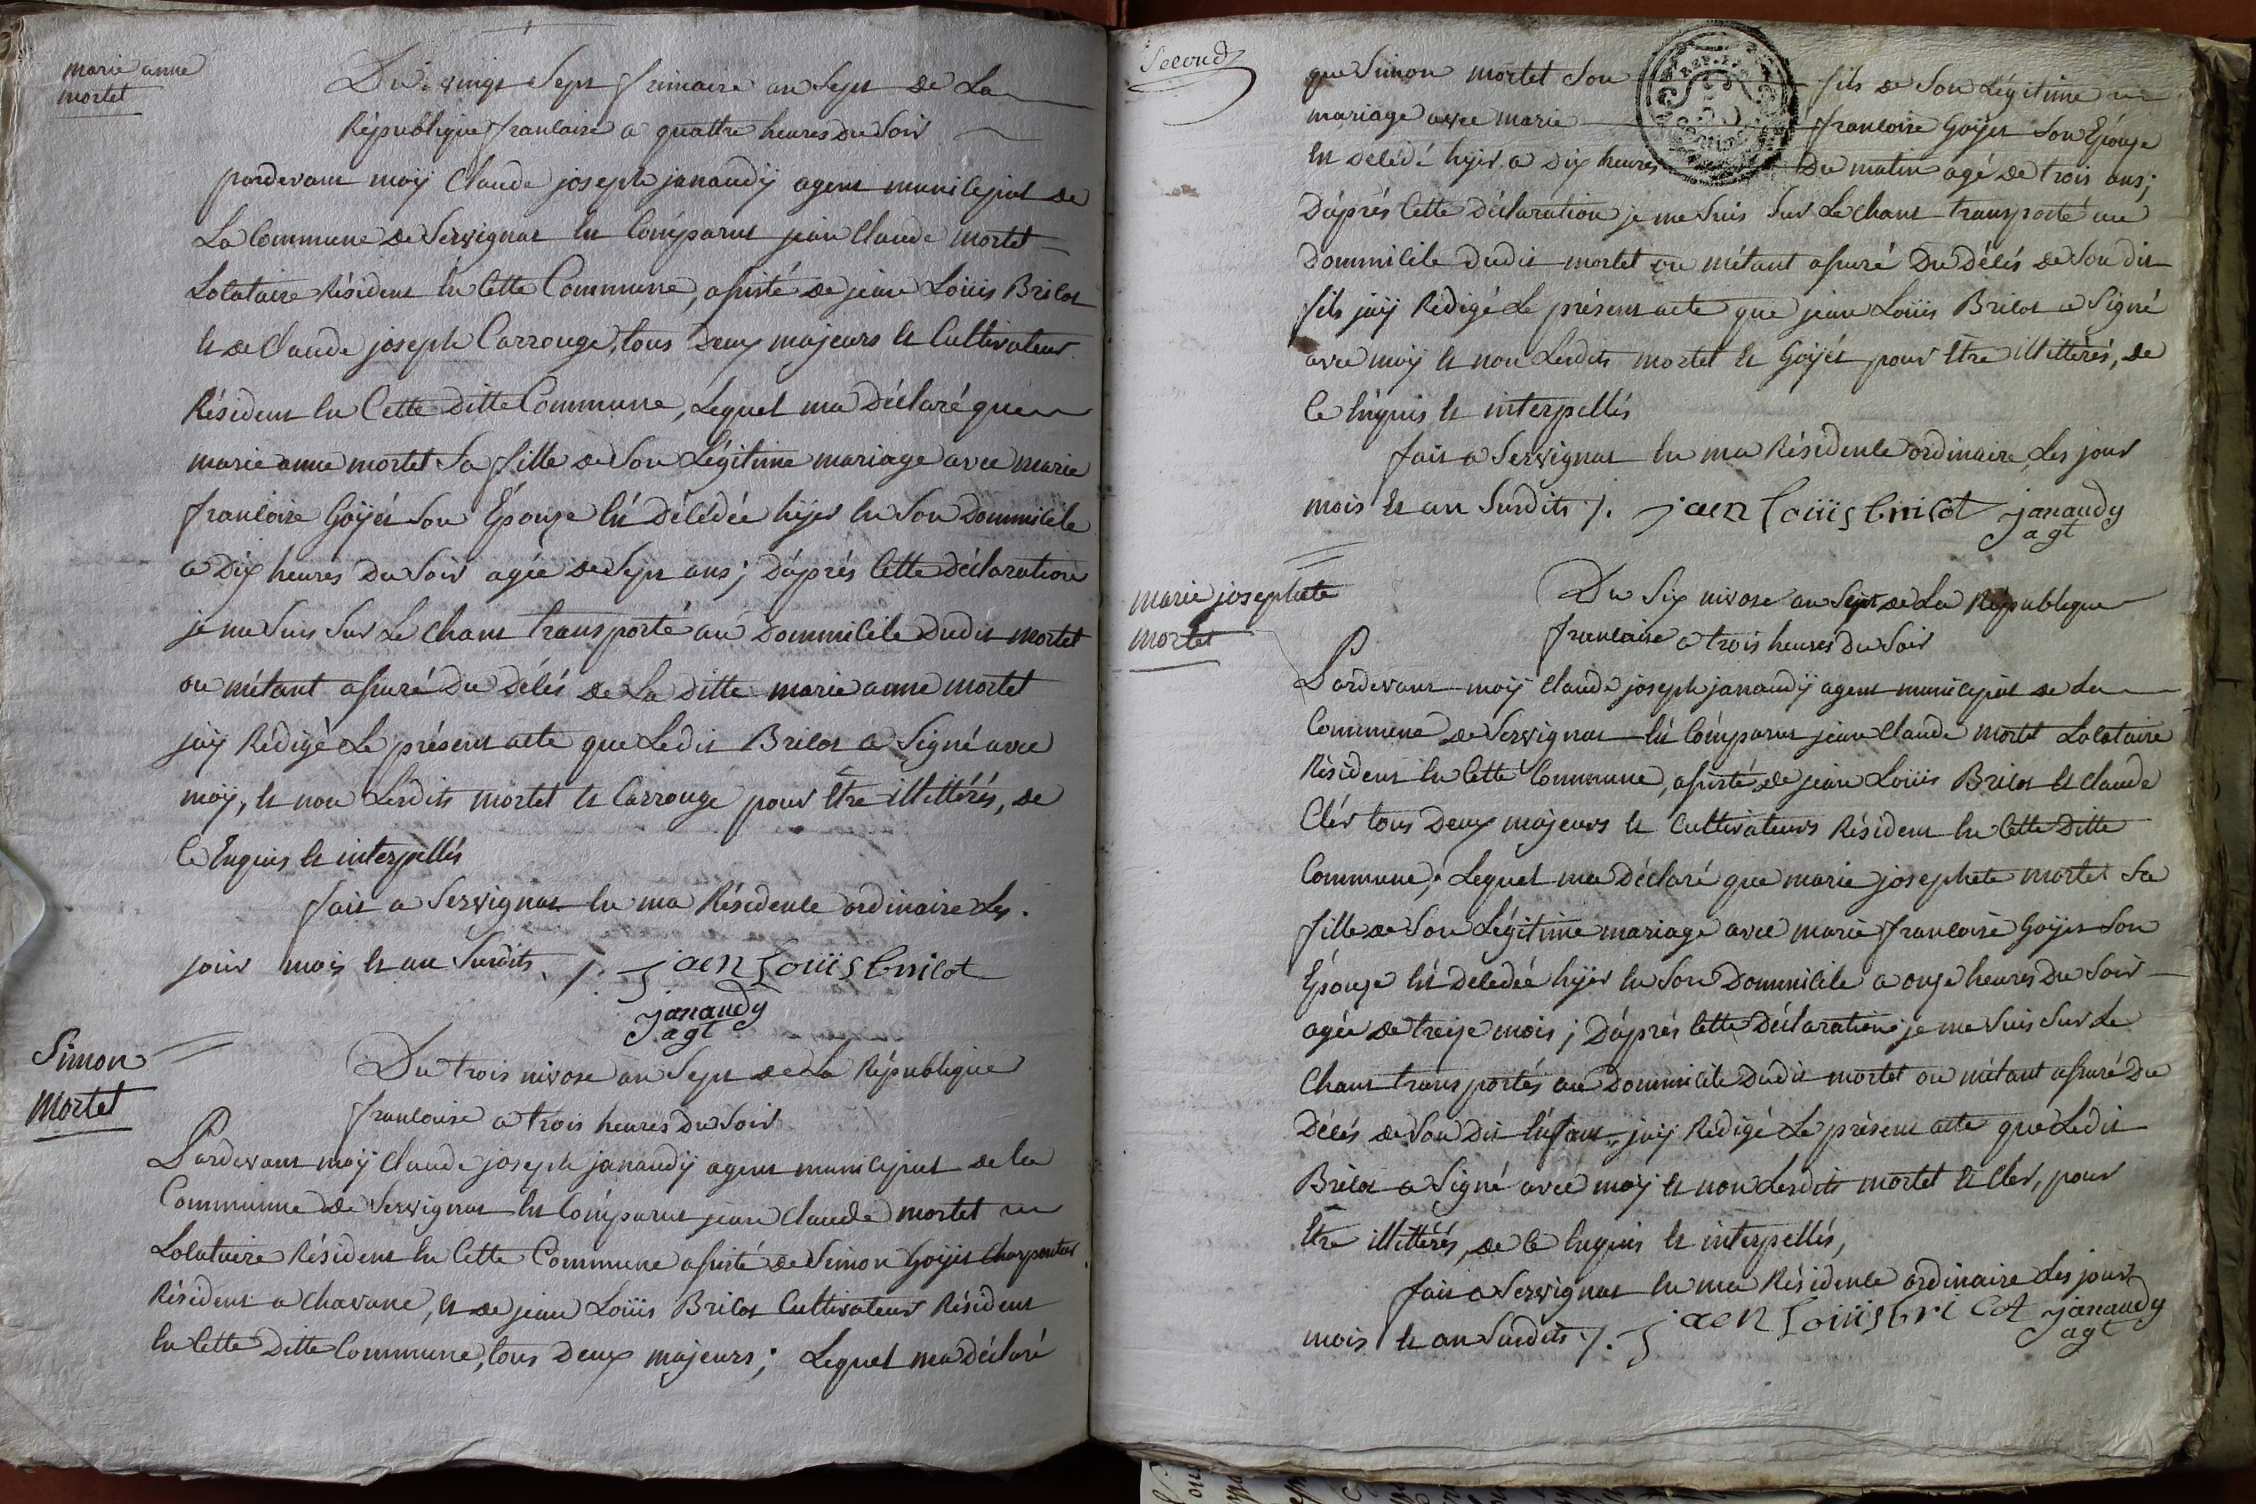 marie anne
mortet
Du vingt Sept frimaire an Sept de La
République francaise a quattre heures du Soir
pardevant moÿ Claude joseph janaudÿ agent municipal de
La Commune de Servignat Est Comparut jean Claude mortet
Locataire Résident En Cette Commune, assisté de jean Loüis Bricot
Et de Claude joseph Carrouge, tous Deux majeurs Et Cultivateur
Résident En Cette Ditte Commune, Lequel ma Déclaré que
marie anne mortet Sa fille de Son Légitime mariage avec marie
francoise Goÿet Son Épouse Est Décédée hÿer En Son Dommicile
a Dix heures Du Soir agée de Sept ans; D'après Cette Déclaration
je me Suis Sur Le Champ transporté au Dommicile Dudit mortet
ou m'étant assuré Du Décés de La Ditte marie anne mortet
jaÿ Rédigé Le présent acte que Ledit Bricot a Signé avec
moÿ, Et non Lesdits mortet Et Carrouge pour Etre illittérés, de
Ce Enquis Et interpellés
fait a Servignat En ma Résidence ordinaire Les
jour mois Et an Susdits ./. jaen Loüis bricot
janaudy
agt
Simon
mortet
Du trois nivose an Sept de La République
francaise a trois heures Du Soir
Pardevant moÿ Claude joseph janaudÿ agent municipal de La
Commune de Servignat Est Comparut jean Claude mortet
Locataire Résident En Cette Commune assisté de Simon Goÿet Charpentier
Résident a Chavane, Et de jean Loüis Bricot Cultivateur Résident
En Cette Ditte Commune, tous Deux majeurs; Lequel ma Déclaré
Second
que Simon mortet Son fils de Son Légitime
mariage avec marie francoise Goÿet Son Épouse
Est Décédé hÿer a Dix heures Du matin agé de trois ans;
D'après Cette Déclaration je me Suis Sur Le Champ transporté au
Dommicile Dudit mortet ou m'étant assuré Du Décés de Son dit
fils jaÿ Rédigé Le présent acte que jean Loüis Bricot a Signé
avec moÿ Et non Lesdits mortet Et Goÿet pour Etre illittérés, de
Ce Enquis Et interpellés
fait a Servignat En ma Résidence ordinaire Les jour
mois Et an Susdits ./. jaen Loüis bricot janaudy
agt
marie josephete
mortet
Du Six nivose an Sept de La République
francaise a trois heures Du Soir
Pardevant moÿ Claude joseph janaudÿ agent municipal de La
Commune de Servignat Est Comparut jean Claude mortet Locataire
Résident En Cette Commune, assisté de jean Loüis Bricot Et Claude
Clér tous Deux majeurs Et Cultivateurs Résident En Cette Ditte
Commune; Lequel ma Déclaré que marie josephete mortet Sa
fille de Son Légitime mariage avec marie francoise Goÿet Son
Épouse Est Décédée hÿer En Son Dommicile a onze heures Du Soir
agée de treize mois; D'après Cette Déclaration je me Suis Sur Le
Champ transportés au Dommicile Dudit mortet ou m'étant assuré Du
Décés de Son Dit Enfant jaÿ Rédigé Le présent acte que Ledit
Bricot a Signé avec moÿ Et non Lesdits mortet Et Cler, pour
Etre illittérés, de Ce Enquis Et interpellés,
fait a Servignat En ma Résidence ordinaire Les jour
mois Et an Susdits ./. jaen Loüis bricot janaudy
agt